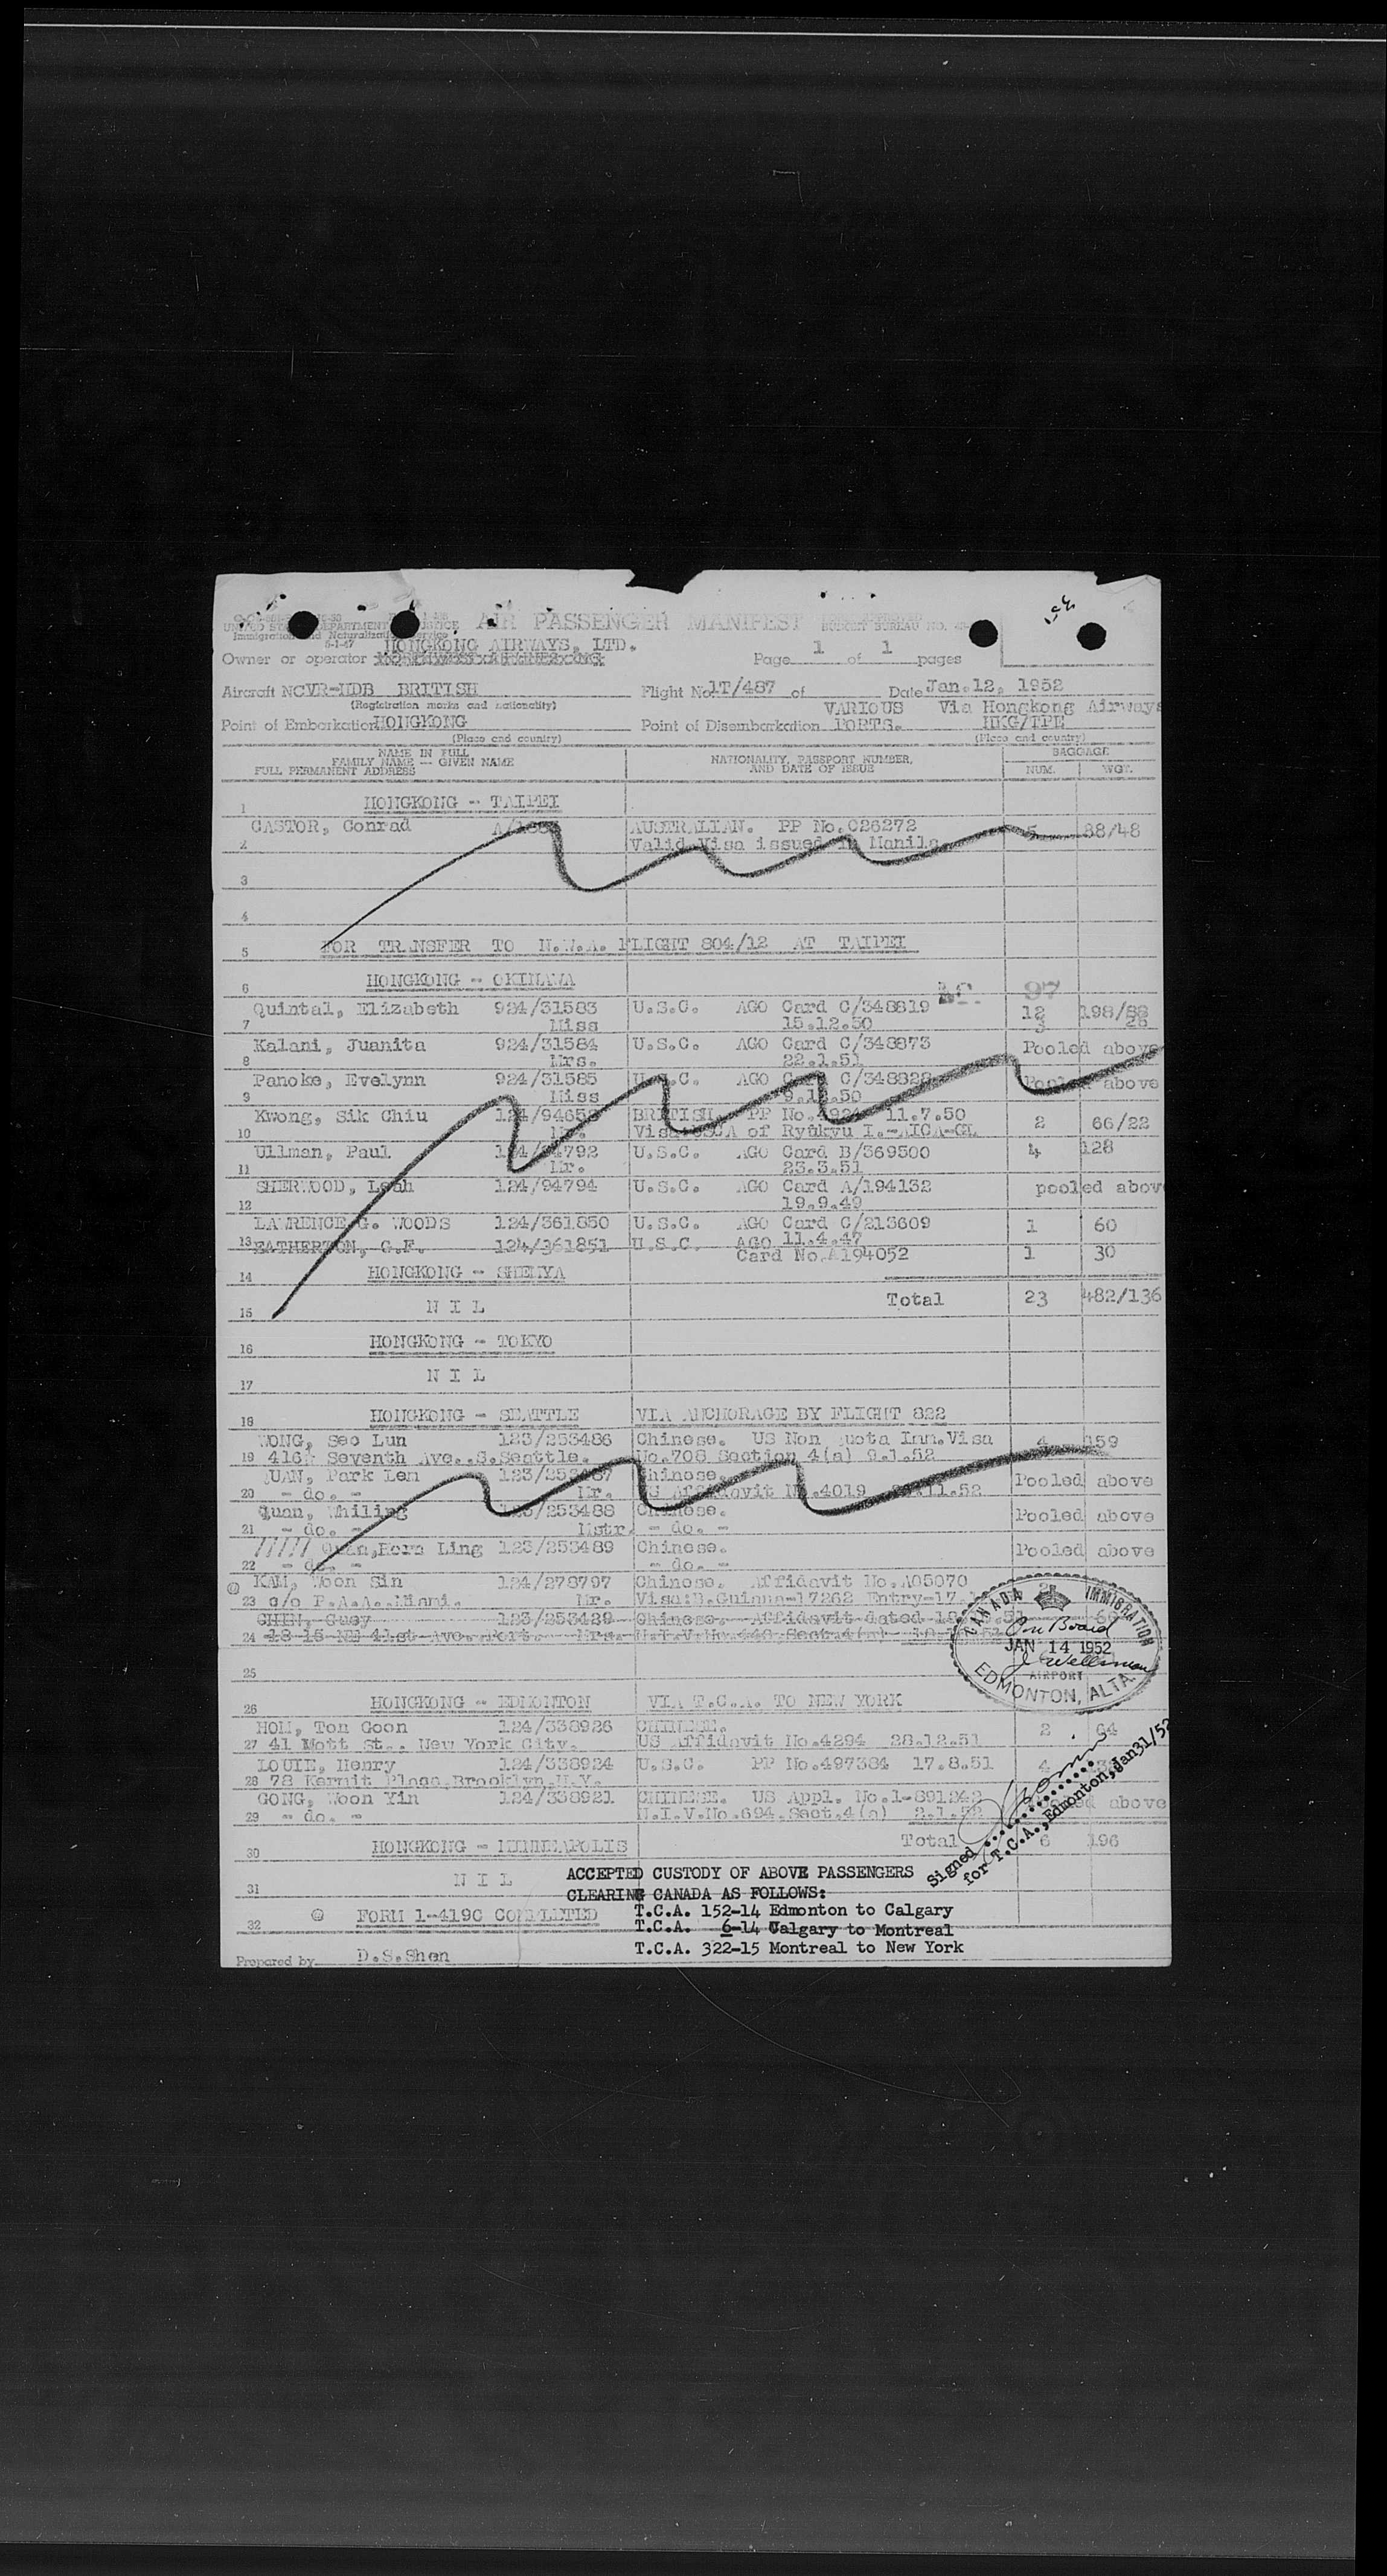 AIR PASSENGER MANIFEST
HONGKONG AIRWAYS, LTD.
Owner or operator
Page 1 of 1 pages
Aircraft NO VR-HDB BRITISH Flight No. 1T/487 of Date Jan.12, 1952
(Registration marks and nationality)
VARIOUS Via Hongkong Airways
Point of Embarkation HONGKONG Point of Disembarkation PORTS. HKG/TPE
(Place and country) (Place and country)
NAME IN FULL
FAMILY NAME -- GIVEN NAME
FULL PERMANENT ADDRESS
NATIONALITY, PASSPORT NUMBER,
AND DATE OF ISSUE
BAGGAGE
NUM. WGT.
1 HONGKONG - TAIPEI
CASTOR, Conrad AUSTRALIAN. PP No.026272 5 88/48
2 Valid Visa issued in Manila
3
4
5 FOR TRANSFER TO N.W.A. FLIGHT 804/12 AT TAIPEI
6 HONGKONG - OKINAWA
97
Quintal, Elizabeth 924/31583 U.S.C. AGO Card C/348819 12 198/88
7 Miss 15.12.50 3 26
Kalani, Juanita 924/31584 U.S.C. AGO Card C/348873 Pooled above
8 Mrs. 22.1.51
Panoke, Evelynn 924/31585 U.S.C. AGO Card Pooled above
9 Miss
Kwong, Sik Chiu BRITISH. PP No. 11.7.50 2 66/22
10 Mr. Visa of Ryukyu I.-AICA-GL
Ullman, Paul U.S.C. AGO Card B/369500 4 128
11 Mr. 23.3.51
SHERWOOD, Leah 124/94794 U.S.C. AGO Card A/194132 pooled above
12 19.9.49
LAWRENCE G. WOODS 124/361850 U.S.C. AGO Card C/213609 1 60
11.4.47
13 EATHERTON, G.F. 124/361851 U.S.C. AGO Card No.A194052 1 30
14 HONGKONG - SHEMYA
15 N I L Total 23 482/136
16 HONGKONG - TOKYO
17 N I L
18 HONGKONG - SEATTLE VIA ANCHORAGE BY FLIGHT 822
WONG, Seo Lun 123/253486 Chinese. US Non Quota Imm.Visa 4 159
19 Seventh Ave. S.Seattle. No.708 Section 4(a) 9.1.52
QUAN, Park Len 123/253487 Chinese. Pooled above
20 - do. - Mr. US Affidavit No.4019
Quan, Whiling 123/253488 Chinese. Pooled above
21 - do. - Mstr. - do. -
///// Quan, Ling 123/253489 Chinese. Pooled above
22 - do. - - do. -
KAM, Woon Sin 124/278797 Chinese. Affidavit No.A05070
23 c/o P.A.A. Miami. Mr. Visa:B.Guiana-17262 Entry-17.
CHIN, Guey 123/253429 Chinese. Affidavit dated
24 18 15 NE 41st Ave. Port. Mrs. N.I.V.No.440,Sect.4(a)
CANADA IMMIGRATION
On Board
JAN 14 1952
J Wellman
AIRPORT
EDMONTON, ALTA.
25
26 HONGKONG - EDMONTON VIA T.C.A. TO NEW YORK
HOM, Ton Goon 124/338926 CHINESE. 2 64
27 41 Mott St., New York City. US Affidavit No.4294 28.12.51
LOUIE, Henry 124/338924 U.S.C. PP No.497384 17.8.51 4
28 78 Kermit Place,Brooklyn,N.Y.
GONG, Woon Yin 124/338921 CHINESE. US Appl. No.1-891242 above
29 - do. - N.I.V.No.694,Sect.4(a) 2.1.52
Total 6 196
30 HONGKONG - MINNEAPOLIS
Signed
for T.C.A., Edmonton, Jan31/52
31 N I L
ACCEPTED CUSTODY OF ABOVE PASSENGERS
CLEARING CANADA AS FOLLOWS:
T.C.A. 152-14 Edmonton to Calgary
32 FORM 1-419C COMPLETED T.C.A. 6-14 Calgary to Montreal
T.C.A. 322-15 Montreal to New York
Prepared by D.S.Shen